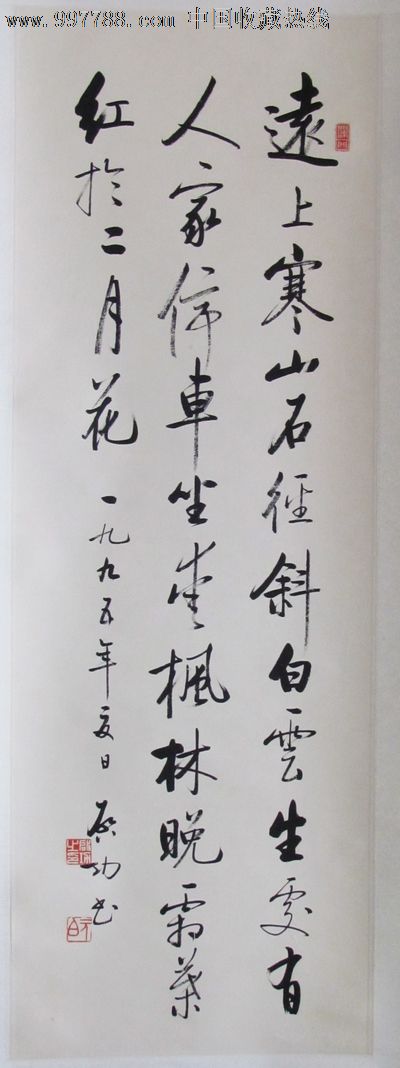 www.997788.com 中国收藏热线
遠上寒山石徑斜白雲生處有
人家停車坐愛楓林晚霜葉
紅於二月花
一九九五年夏日
启功书